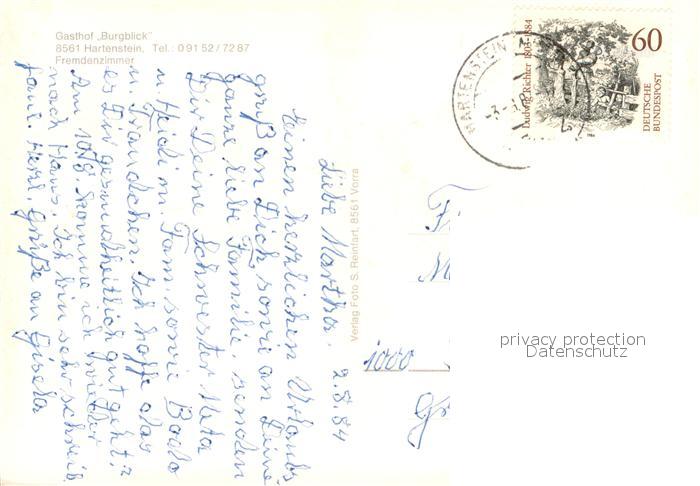 Gasthof „Burgblick"
8561 Hartenstein, Tel.: 0 91 52 / 72 87
Fremdenzimmer
Liebe Martha, 2.8.84
Einen herzlichen Urlaubs
gruß an Dich, sowie an Deine
ganze liebe Familie, senden
Dir Deine Schwester Meta
u. Heidi m. Fam. sowie Bodo
u. Traudchen. Ich hoffe das
es Dir gesundheitlich gut geht?
Am 10/8 komme ich wieder
nach Haus. Ich bin sehr schreib
faul. Herzl. Grüße an Gisela
Verlag Foto S. Reinfart, 8561 Vorra
HARTENSTEIN
Ludwig Richter 1803-1884
60
DEUTSCHE
BUNDESPOST
1000
Gr
privacy protection
Datenschutz